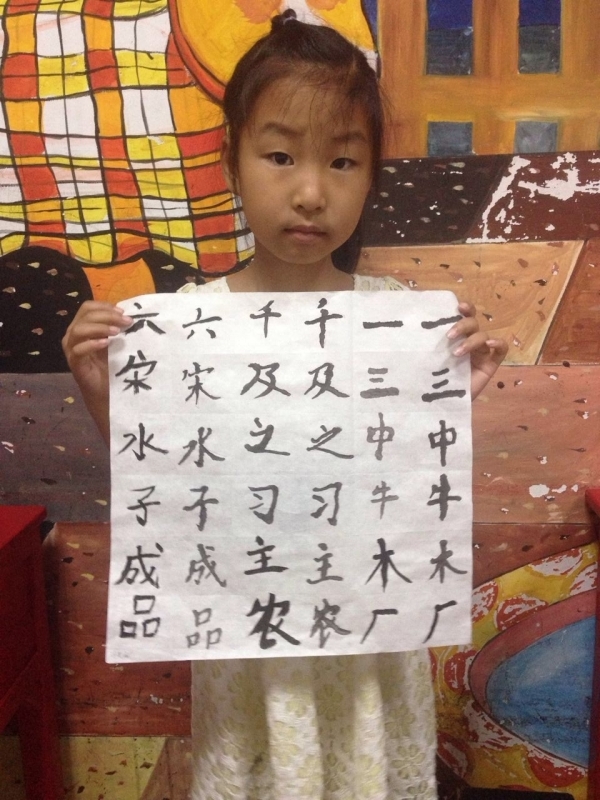 一三中牛木厂
一三中牛木厂
千及之习主农
千及之习主农
六宋水子成品
六宋水子成品